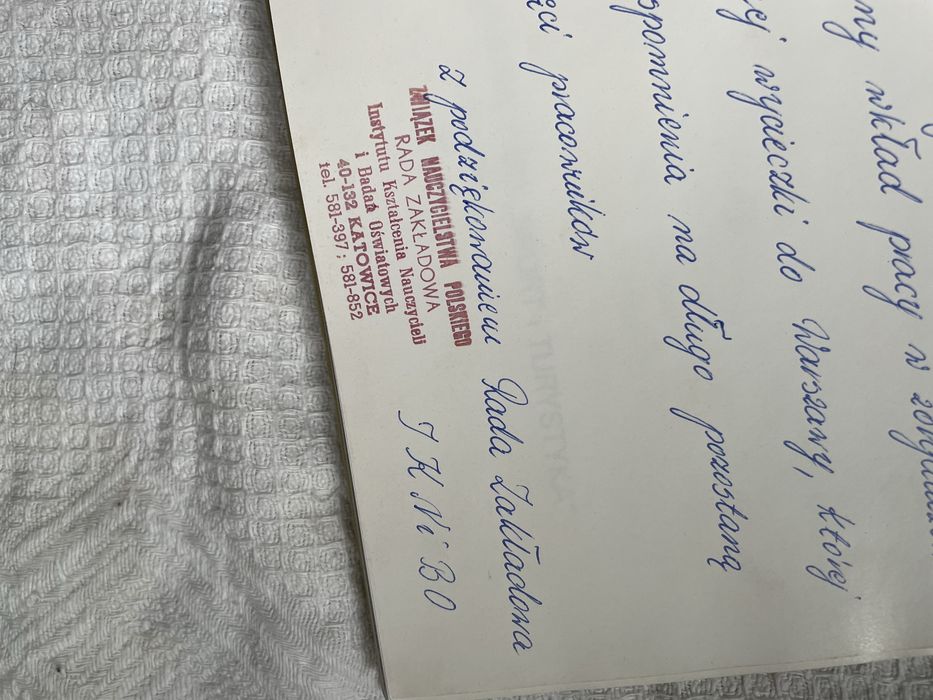 wkład pracy w
wycieczki do Warszawy, której
wspomnienia na długo pozostaną
pracowników
z podziękowaniem Rada Zakładowa
I K N i B O
ZWIĄZEK NAUCZYCIELSTWA POLSKIEGO
RADA ZAKŁADOWA
Instytutu Kształcenia Nauczycieli
i Badań Oświatowych
40-132 KATOWICE
tel. 581-397; 581-852
TURYSTYKA